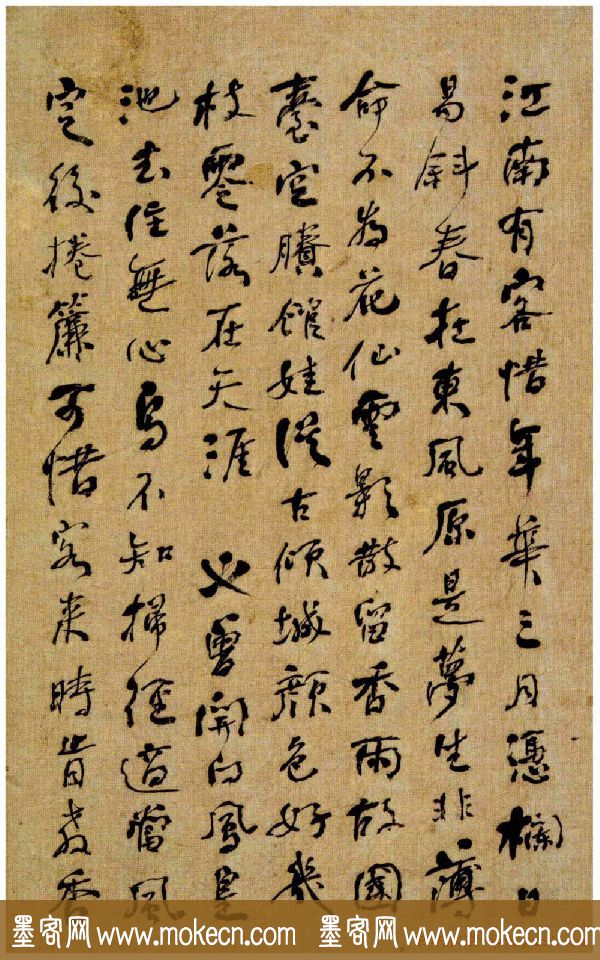 江南有客惜年華三月憑欄日
易斜春在東風原是夢生非薄
命不為花仙雲影散留香雨故國
臺空賸館娃從古傾城顏色好幾
枝零落在天涯 又曾開向鳳皇
池去住無心鳥不知掃徑適當風
定後捲簾可惜客來時肯教香
墨客网 www.mokecn.com 墨客网 www.mokecn.com